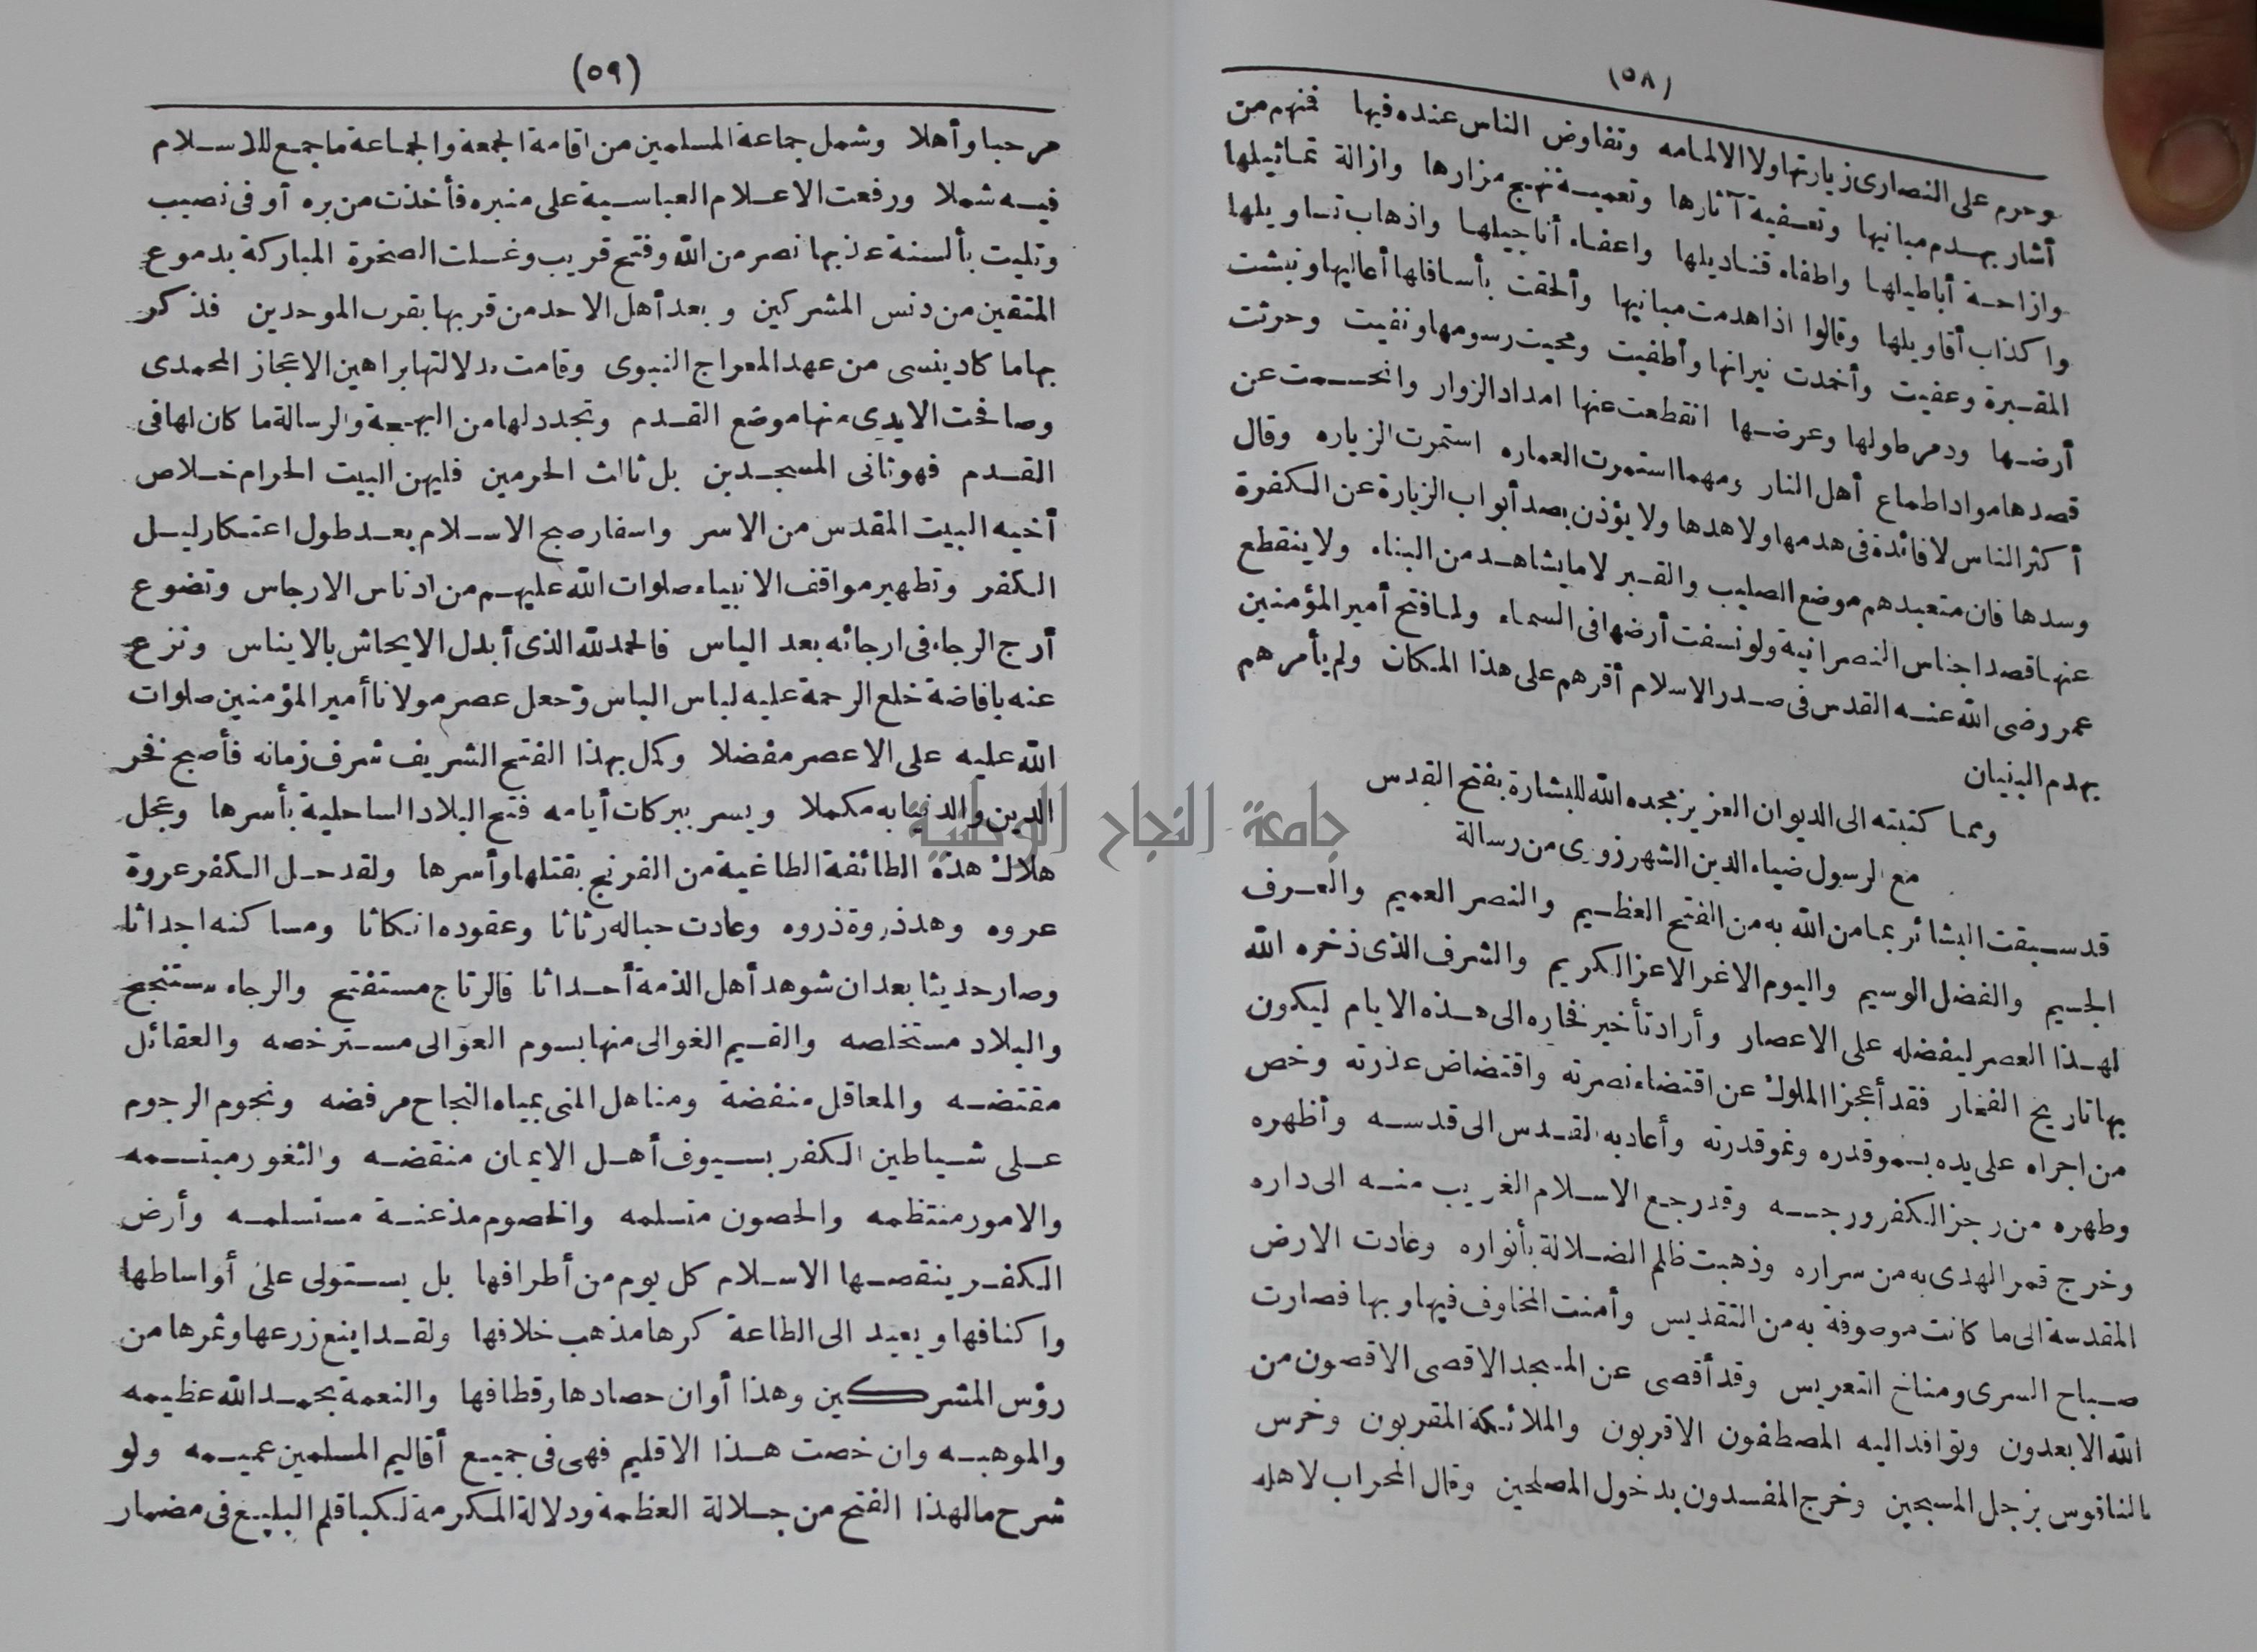 (٥٨)
وحرم على النصارى زيارتها ولا الالمامه وتفاوض الناس عنده فيها فمنهم من
أشار بهدم مبانيها وتعفية آثارها وتعمية نهج مزارها وازالة تماثيلها
وازاحة أباطيلها واطفاء قناديلها واعفاء أناجيلها واذهاب تساويلها
واكذاب أقاويلها وقالوا اذا هدمت مبانيها وألحقت بأسافلها أعاليها ونبشت
المقبرة وعفيت وأخمدت نيرانها وأطفيت ومحيت رسومها ونفيت وحرثت
أرضها ودمر طولها وعرضها انقطعت عنها امداد الزوار وانحسمت عن
قصدها مواد اطماع أهل النار ومهما استمرت العماره استمرت الزياره وقال
أكثر الناس لا فائدة فى هدمها ولا هدها ولا يؤذن بصد أبواب الزيارة عن الكفرة
وسدها فان متعبدهم موضع الصليب والقبر لا ما يشاهد من البناء ولا ينقطع
عنها قصد اجناس النصرانية ولو نسفت أرضها فى السماء ولما فتح أمير المؤمنين
عمر رضى الله عنه القدس فى صدر الاسلام أقرهم على هذا المكان ولم يأمرهم
بهدم البنيان
ومما كتبته الى الديوان العزيز مجده الله للبشارة بفتح القدس
مع الرسول ضياء الدين الشهرزورى من رسالة
قد سبقت البشائر بما من الله به من الفتح العظيم والنصر العميم والعرف
الجسيم والفضل الوسيم واليوم الاغر الاعز الكريم والشرف الذى ذخره الله
لهذا العصر ليفضله على الاعصار وأراد تأخير فخاره الى هذه الايام ليكون
بها تاريخ الفخار فقد أعجز الملوك عن اقتضاء نصرته واقتضاض عذرته وخص
من اجراه على يده بسمو قدره ونمو قدرته وأعاد به القدس الى قدسه وأظهره
وطهره من رجز الكفر ورجسه وقد رجع الاسلام الغريب منه الى داره
وخرج قمر الهدى به من سراره وذهبت ظلم الضلالة بأنواره وعادت الارض
المقدسة الى ما كانت موصوفة به من التقديس وأمنت المخاوف فيها وبها فصارت
صباح السرى ومناخ التعريس وقد أقصى عن المسجد الاقصى الاقصون من
الله الابعدون وتوافد اليه المصطفون الاقربون والملائكة المقربون وخرس
الناقوس بزجل المسبحين وخرج المفسدون بدخول المصلحين وقال المحراب لاهله
(٥٩)
مرحبا وأهلا وشمل جماعة المسلمين من اقامة الجمعة والجماعة ما جمع للاسلام
فيه شملا ورفعت الاعلام العباسية على منبره فأخذت من بره أوفى نصيب
وتليت بألسنة عذبها نصر من الله وفتح قريب وغسلت الصخرة المباركة بدموع
المتقين من دنس المشركين وبعد أهل الاحد من قربها بقرب الموحدين فذكر
بها ما كاد ينسى من عهد المعراج النبوى وقامت بدلالتها براهين الاعجاز المحمدى
وصافحت الايدى منها موضع القدم وتجدد لها من البهجة والرسالة ما كان لها فى
القدم فهو ثانى المسجدين بل ثالث الحرمين فليهن البيت الحرام خلاص
أخيه البيت المقدس من الاسر واسفار صبح الاسلام بعد طول اعتكار ليل
الكفر وتطهير مواقف الانبياء صلوات الله عليهم من ادناس الارجاس وتضوع
أرج الرجاء فى ارجائه بعد الياس فالحمد لله الذى أبدل الايحاش بالايناس ونزع
عنه بافاضة خلع الرحمة عليه لباس الباس وجعل عصر مولانا أمير المؤمنين صلوات
الله عليه على الاعصر مفضلا وكمل بهذا الفتح الشريف شرف زمانه فأصبح فخر
الدين والدنيا به مكملا ويسر ببركات أيامه فتح البلاد الساحلية بأسرها وعجل
هلاك هذه الطائفة الطاغية من الفرنج بقتلها وأسرها ولقد حل الكفر عروة
عروه وهد ذروة ذروه وعادت حباله رثاثا وعقوده انكاثا ومساكنه اجداثا
وصار حديثا بعد ان شوهد أهل الذمة أحداثا فالرتاج مستفتح والرجاء مستنجح
والبلاد مستخلصه والقيم الغوالى منها بسوم العوالى مسترخصه والعقائل
مقتضه والمعاقل منفضة ومناهل المنى بمياه النجاح مرفضه ونجوم الرجوم
على شياطين الكفر بسيوف أهل الايمان منقضه والثغور مبتسمه
والامور منتظمه والحصون متسلمه والخصوم مذعنة مستسلمه وأرض
الكفر ينقصها الاسلام كل يوم من أطرافها بل يستولى على أواساطها
واكنافها ويعيد الى الطاعة كرها مذهب خلافها ولقد اينع زرعها وثمرها من
رؤس المشركين وهذا أوان حصادها وقطافها والنعمة بحمد الله عظيمه
والموهبه وان خصت هذا الاقليم فهى فى جميع أقاليم المسلمين عميمه ولو
شرح ما لهذا الفتح من جلالة العظمة ودلالة المكرمة لكبا قلم البليغ فى مضمار
جامعة النجاح الوطنية